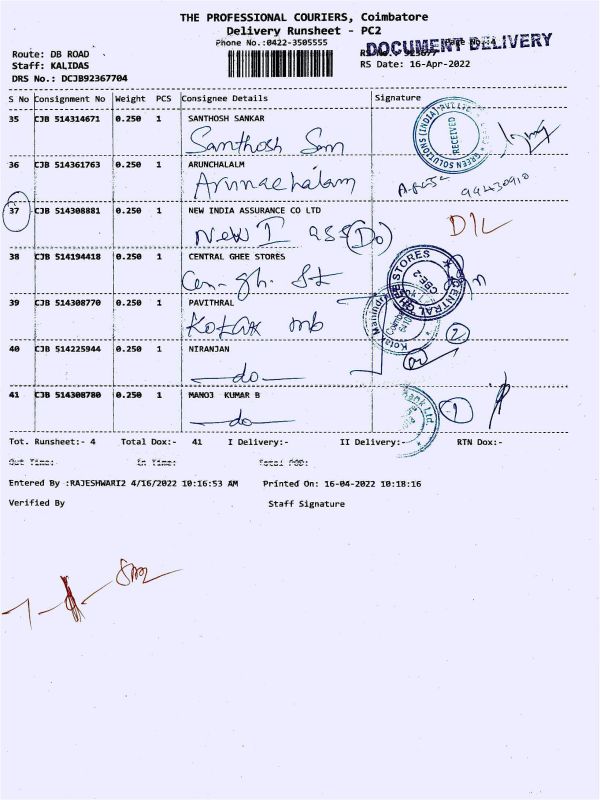 THE PROFESSIONAL COURIERS, Coimbatore
Delivery Runsheet - PC2
Phone No.:0422-3505555
DOCUMENT DELIVERY
Route: DB ROAD
Staff: KALIDAS
RS Date: 16-Apr-2022
DRS No.: DCJB92367704
S No Consignment No Weight PCS Consignee Details Signature
35 CJB 514314671 0.250 1 SANTHOSH SANKAR
Santhosh San
GREEN SOLUTIONS (INDIA) PVT LTD RECEIVED
36 CJB 514361763 0.250 1 ARUNCHALALM
Arunachalam
37 CJB 514308881 0.250 1 NEW INDIA ASSURANCE CO LTD
New I ass (Do)
D/L
38 CJB 514194418 0.250 1 CENTRAL GHEE STORES
Cen. gh. St
CENTRAL GHEE STORES CBE-2
39 CJB 514308770 0.250 1 PAVITHRAL
Kotak mb
Kotak Mahindra
2
40 CJB 514225944 0.250 1 NIRANJAN
do
41 CJB 514308780 0.250 1 MANOJ KUMAR B
do
Bank Ltd
1
Tot. Runsheet:- 4 Total Dox:- 41 I Delivery:- II Delivery:- RTN Dox:-
Out Time: In Time: Total POD:
Entered By :RAJESHWARI2 4/16/2022 10:16:53 AM Printed On: 16-04-2022 10:18:16
Verified By Staff Signature